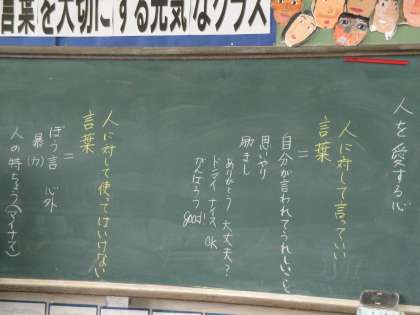 言葉を大切にする元気なクラス
人を愛する心
人に対して言っていい
言葉
=
自分が言われてうれしいこと。
思いやり
励まし
ありがとう 大丈夫?
ドンマイ ナイス OK
がんばろう good!
人に対して使ってはいけない
言葉
=
ぼう言 心外
暴(力)
人の特ちょう(マイナス)